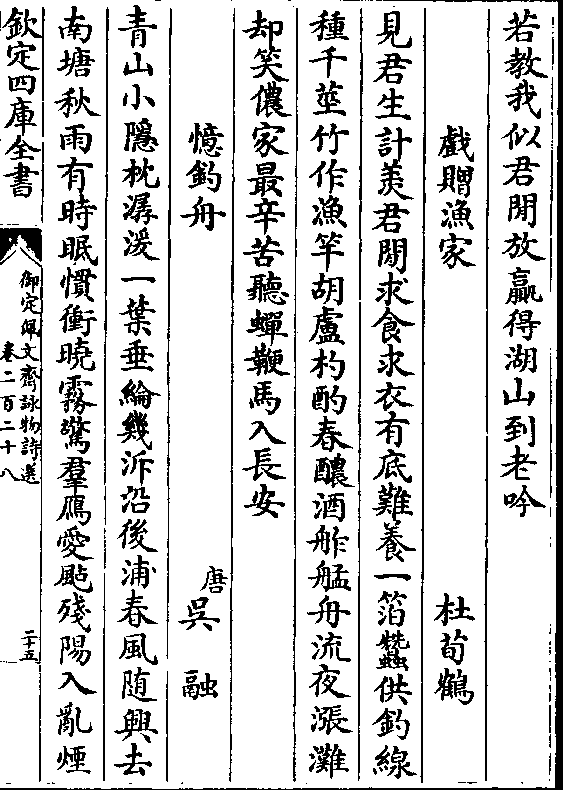 若教我似君閒放贏得湖山到老吟
戲贈漁家 杜荀鶴
見君生計羨君閒求食求衣有底難養一箔蠶供釣線
種千莖竹作漁竿胡盧杓酌春醲酒舴艋舟流夜漲灘
却笑儂家最辛苦聽蟬鞭馬入長安
憶釣舟 唐吳融
青山小隱枕潺湲一葉垂綸幾泝沿後浦春風随興去
南塘秋雨有時眠慣衝曉霧驚羣鴈愛颭殘陽入亂煙
欽定四庫全書
御定佩文齋詠物詩選
卷二百二十八
二十五